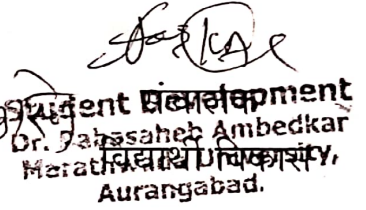 संचालक
Student Development
Dr. Babasaheb Ambedkar
विद्यार्थी विकास
Marathwada University,
Aurangabad.